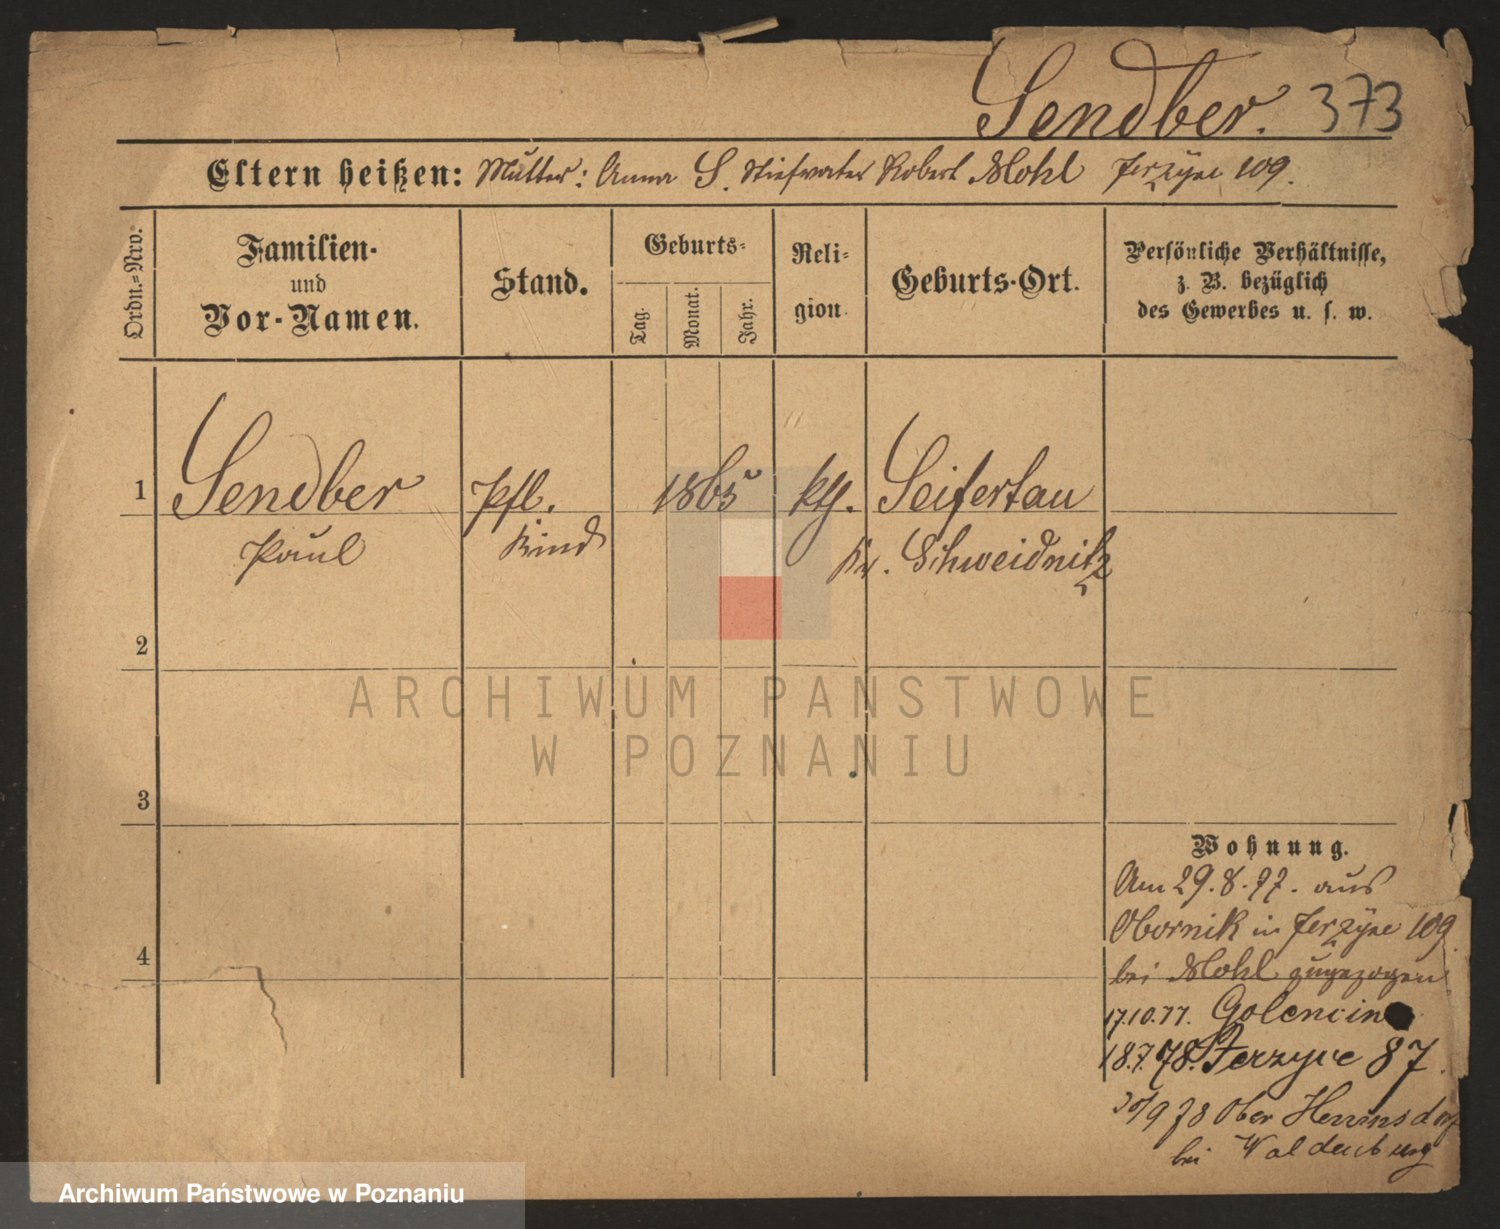 Sendber. 373
Eltern heißen: Mutter: Anna S. Stiefvater Robert Mohl Jerzyce 109.
Ordn.-Nro.
Familien-
und
Vor-Namen.
Stand.
Geburts-
Tag.
Monat.
Jahr.
Reli-
gion.
Geburts-Ort.
Persönliche Verhältnisse,
z. B. bezüglich
des Gewerbes u. s. w.
1 Sendber Pfl. 1865 kth. Seifertau
Paul Kind Kr. Schweidnitz
2
3
4
ARCHIWUM PAŃSTWOWE
W POZNANIU
Wohnung.
Am 29.8.77. aus
Obornik in Jerzyce 109
bei Mohl zugezogen
17.10.77. Golencin
18.7.78. Jerzyce 87.
30/9 78 Ober Hermsdorf
bei Waldenburg
Archiwum Państwowe w Poznaniu